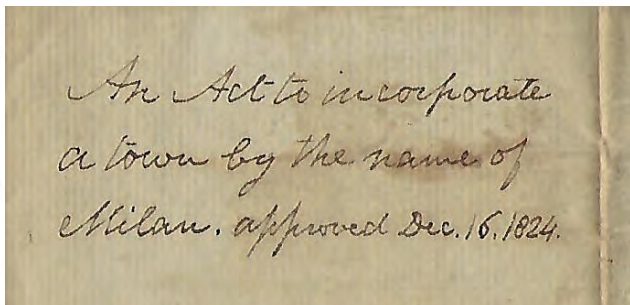 An Act to incorporate
a town by the name of
Milan. approved Dec. 16. 1824.